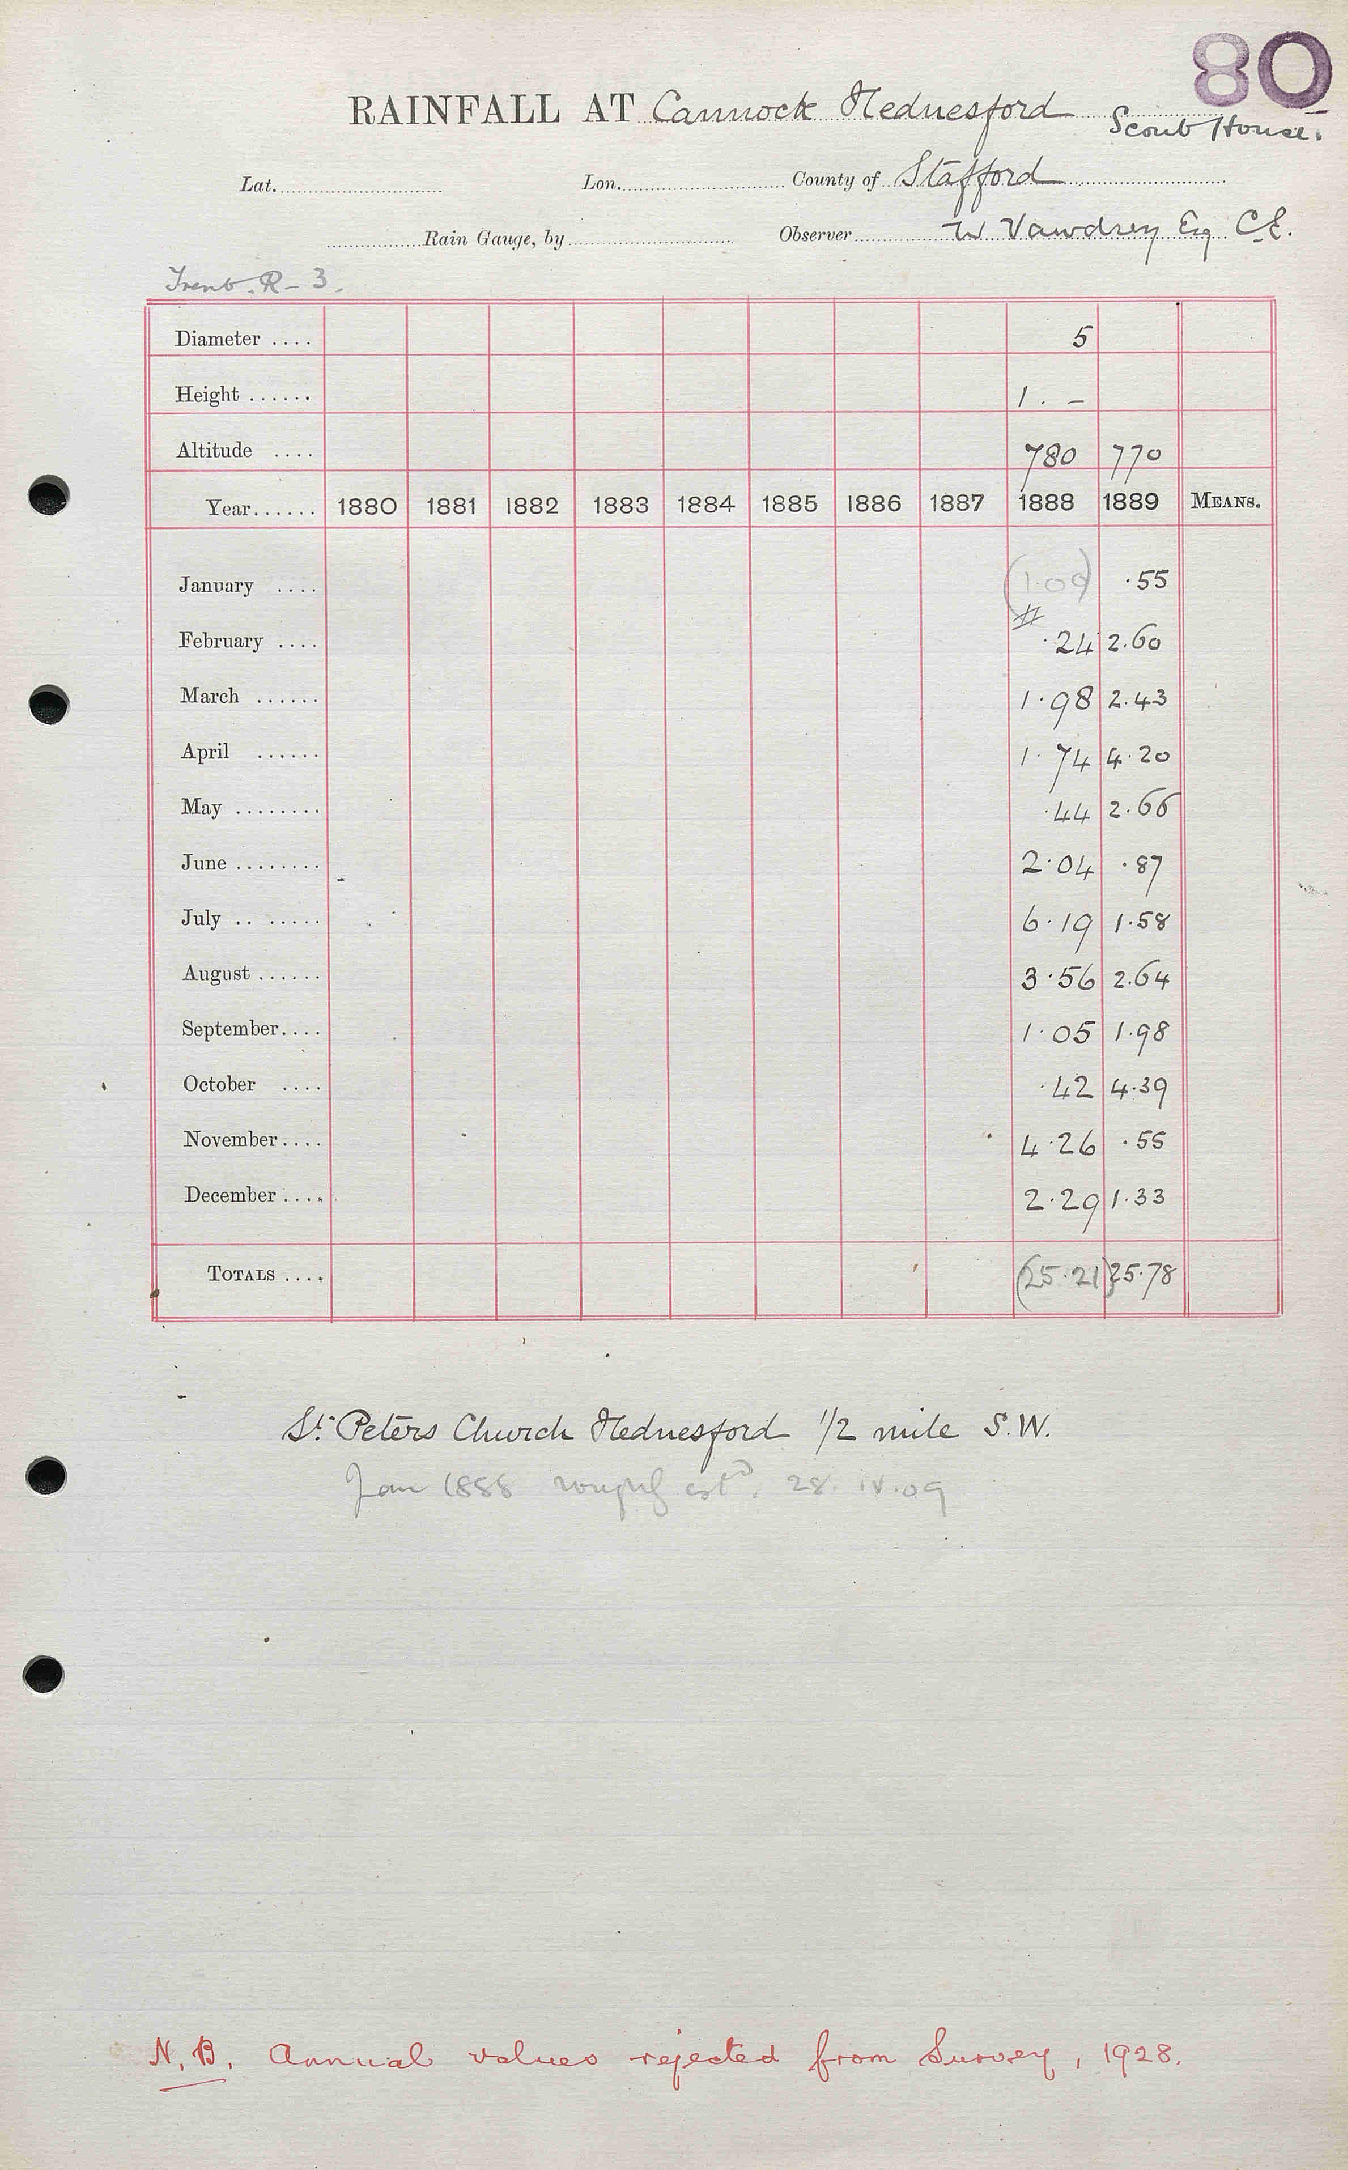 80
RAINFALL AT Cannock Hednesford
Scout House.
Lat. Lon. County of Stafford
Rain Gauge, by Observer W Vawdrey Esq C.E.
Trent. R - 3.
Diameter .... 5
Height ...... 1. -
Altitude .... 780 770
Year...... 1880 1881 1882 1883 1884 1885 1886 1887 1888 1889 MEANS.
January .... (1.00) .55
#
February .... .24 2.60
March ...... 1.98 2.43
April ...... 1.74 4.20
May ........ .44 2.66
June ........ 2.04 .87
July .. ..... 6.19 1.58
August ...... 3.56 2.64
September.... 1.05 1.98
October .... .42 4.39
November.... 4.26 .55
December .... 2.29 1.33
TOTALS .... (25.21) 25.78
St. Peters Church Hednesford 1/2 mile S.W.
Jan 1888 roughly estd. 28.IV.09
N.B. Annual values rejected from Survey, 1928.